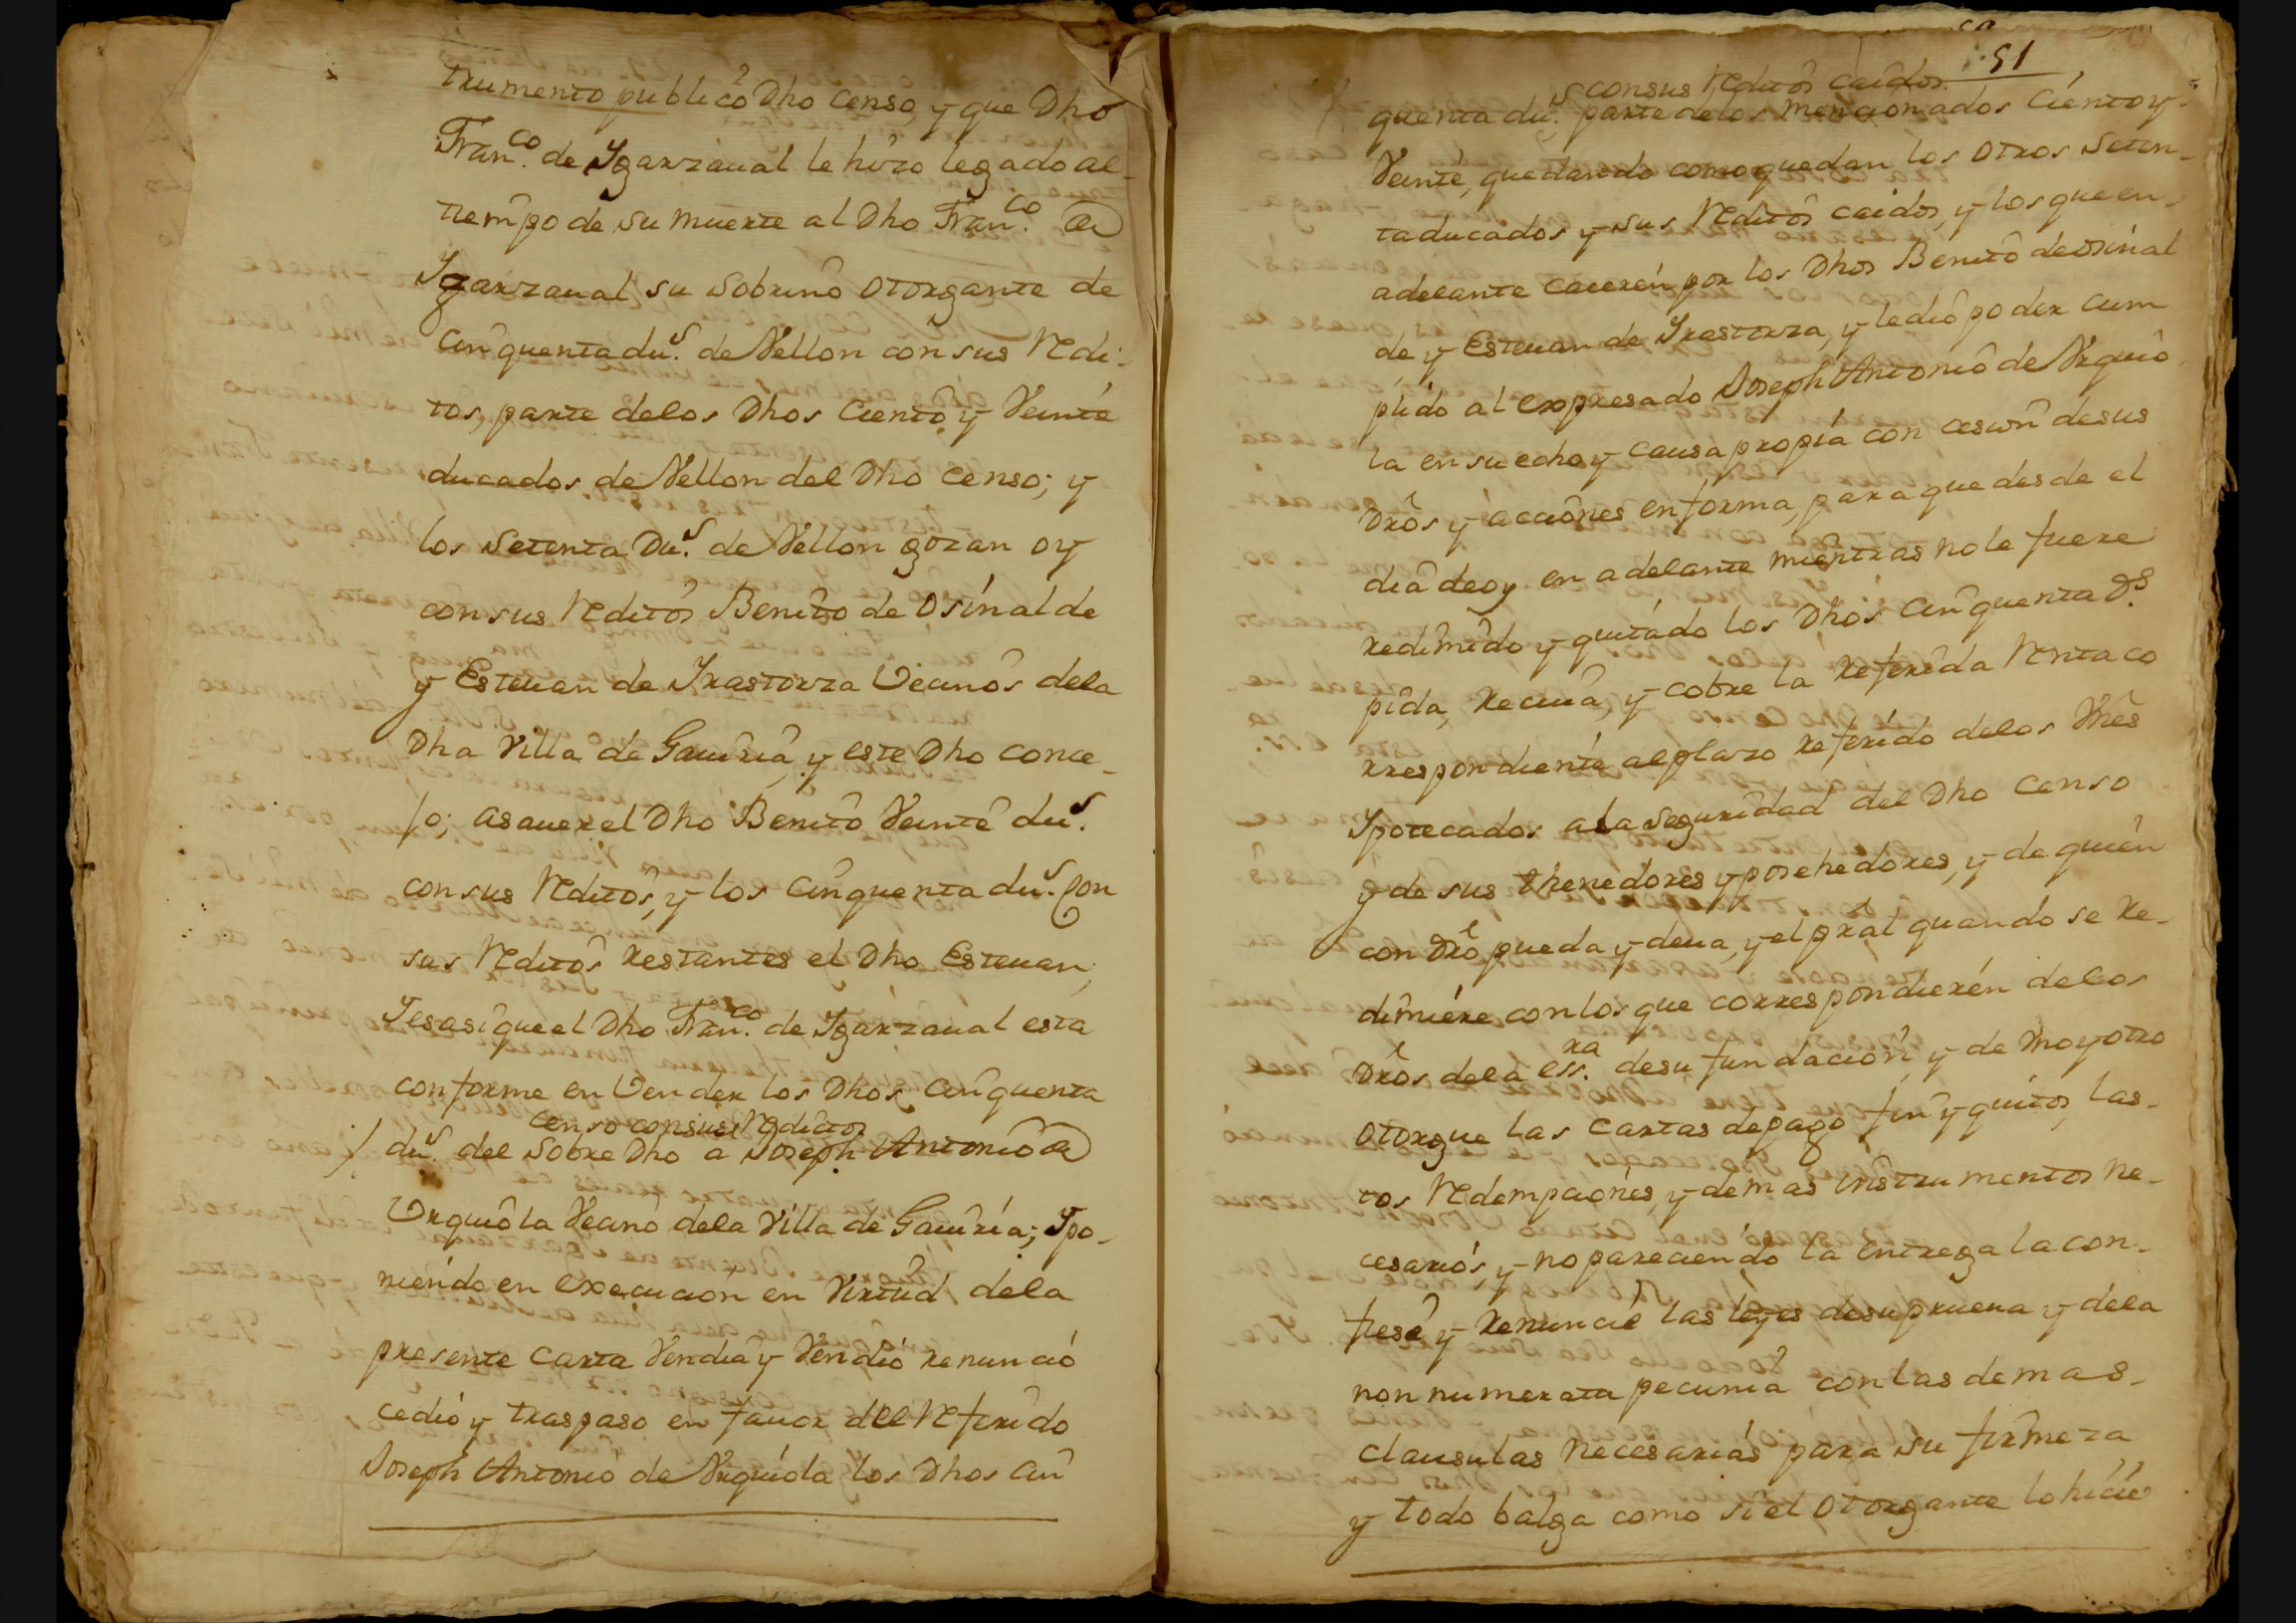 trumento publico Dho Censo, y que Dho
Fran.co de Ygarzaual le hizo legado al
tiempo de su muerte al Dho Fran.co de
Ygarzaual su sobrino otorgante de
cinquenta du.s de Vellon con sus Redi-
tos, parte delos Dhos Ciento y Veinte
ducados de Vellon del Dho Censo; y
los Setenta Du.s de Vellon gozan oy
con sus Reditos Benito de Osinalde
y Esteuan de Yrastorza Vecinos dela
Dha Villa de Gauiria, y este Dho conce-
jo; asauer el Dho Benito Veinte du.s
con sus Reditos, y los cinquenta du.s con
sus Reditos restantes el Dho Esteuan;
Yes asi que el Dho Fran.co de Ygarzaual esta
conforme en Vender los Dhos cinquenta
censo con sus Reditos
du.s del sobre Dho a Joseph Antonio de
Urquiola Vecino dela Villa de Gauiria; Ypo-
niendo en execucion en Virtud dela
presente Carta Vendia y Vendio renuncio
cedio y traspaso en fauor del Referido
Joseph Antonio de Vrquiola los Dhos cin
51
con sus Reditos caidos
quenta du.s parte delos mencionados Ciento y
Veinte, quedando como quedan los otros Seten-
ta ducados y sus Reditos caidos, y los que en
adelante caieren por los Dhos Benito de Osinal
de y Esteuan de Yrastorza, y le dio poder cum
plido al expresado Joseph Antonio de Vrquio
la en su echo y causa propia con cesion de sus
Dros y acciones en forma, para que desde el
dia de oy en adelante mientras no le fuere
redimido y quitado los Dhos cinquenta d.s
pida, reciua, y cobre la referida Renta co
rrespondiente al plazo referido delos Vnes
Ypotecados ala seguridad del Dho Censo
y de sus thenedores y posehedores, y de quien
con Dro pueda y deua, y el pral quando se re-
dimiere con los que correspondieren delos
Dros dela ess.ra de su fundacion, y de Vno y otro
otorgue las cartas de pago fin y quito, las-
tos Redempciones, y demas instrumentos ne-
cesarios, y no pareciendo la entrega la con-
fiese y renuncie las leyes de su prueua y dela
non numerata pecunia con las demas
clausulas necesarias para su firmeza
y todo balga como si el otorgante lo hicie